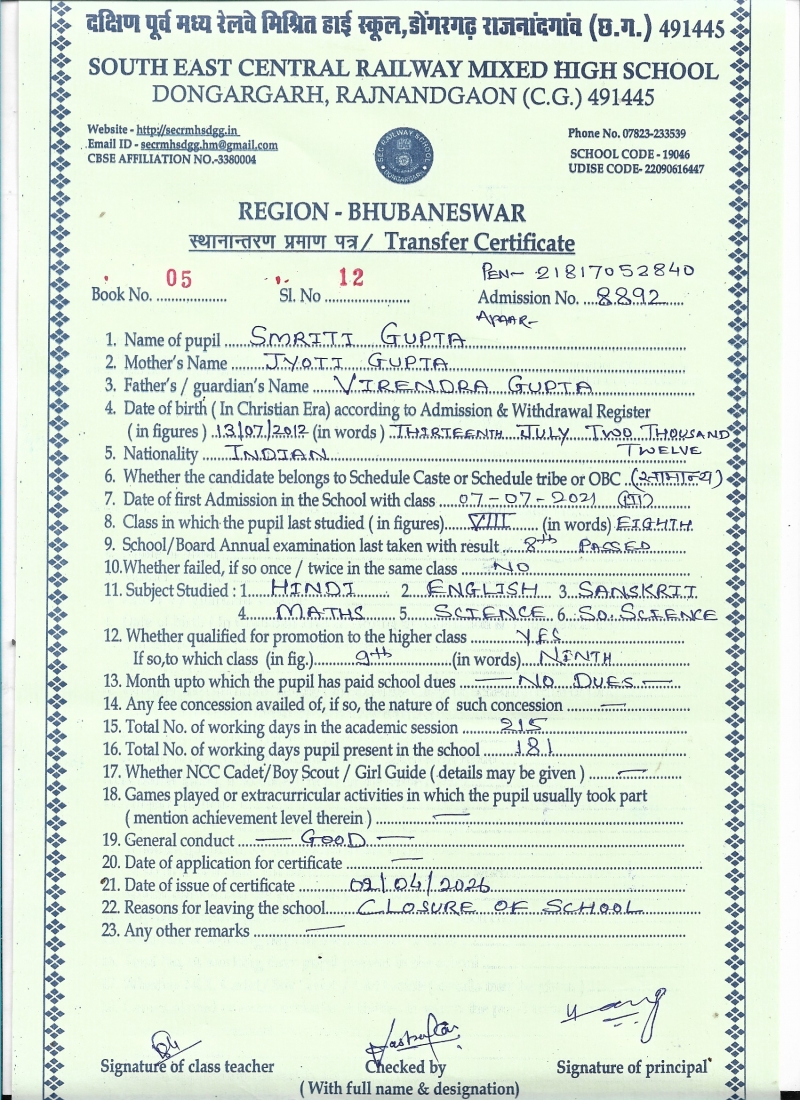 दक्षिण पूर्व मध्य रेलवे मिश्रित हाई स्कूल,डोंगरगढ़ राजनांदगांव (छ.ग.) 491445
SOUTH EAST CENTRAL RAILWAY MIXED HIGH SCHOOL
DONGARGARH, RAJNANDGAON (C.G.) 491445
Website - http://secrmhsdgg.in
Email ID - secrmhsdgg.hm@gmail.com
CBSE AFFILIATION NO.-3380004
SEC RAILWAY SCHOOL
DONGARGARH
Phone No. 07823-233539
SCHOOL CODE - 19046
UDISE CODE- 22090616447
REGION - BHUBANESWAR
स्थानान्तरण प्रमाण पत्र / Transfer Certificate
PEN- 21817052840
Book No. 05 Sl. No 12 Admission No. 8892
APAAR-
1. Name of pupil SMRITI GUPTA
2. Mother's Name JYOTI GUPTA
3. Father's / guardian's Name VIRENDRA GUPTA
4. Date of birth ( In Christian Era) according to Admission & Withdrawal Register
( in figures ) 13/07/2012 (in words ) THIRTEENTH JULY TWO THOUSAND
TWELVE
5. Nationality INDIAN
6. Whether the candidate belongs to Schedule Caste or Schedule tribe or OBC (सामान्य)
7. Date of first Admission in the School with class 07-07-2021
8. Class in which the pupil last studied ( in figures) VIII (in words) EIGHTH
9. School/Board Annual examination last taken with result 8th PASSED
10.Whether failed, if so once / twice in the same class NO
11. Subject Studied : 1. HINDI 2. ENGLISH 3. SANSKRIT
4. MATHS 5. SCIENCE 6. SO. SCIENCE
12. Whether qualified for promotion to the higher class YES
If so,to which class (in fig.) 9th (in words) NINTH
13. Month upto which the pupil has paid school dues — NO DUES —
14. Any fee concession availed of, if so, the nature of such concession —
15. Total No. of working days in the academic session 215
16. Total No. of working days pupil present in the school 181
17. Whether NCC Cadet/Boy Scout / Girl Guide ( details may be given ) —
18. Games played or extracurricular activities in which the pupil usually took part
( mention achievement level therein ) —
19. General conduct — GOOD —
20. Date of application for certificate —
21. Date of issue of certificate 02/04/2026
22. Reasons for leaving the school CLOSURE OF SCHOOL
23. Any other remarks —
Signature of class teacher Checked by Signature of principal
( With full name & designation)